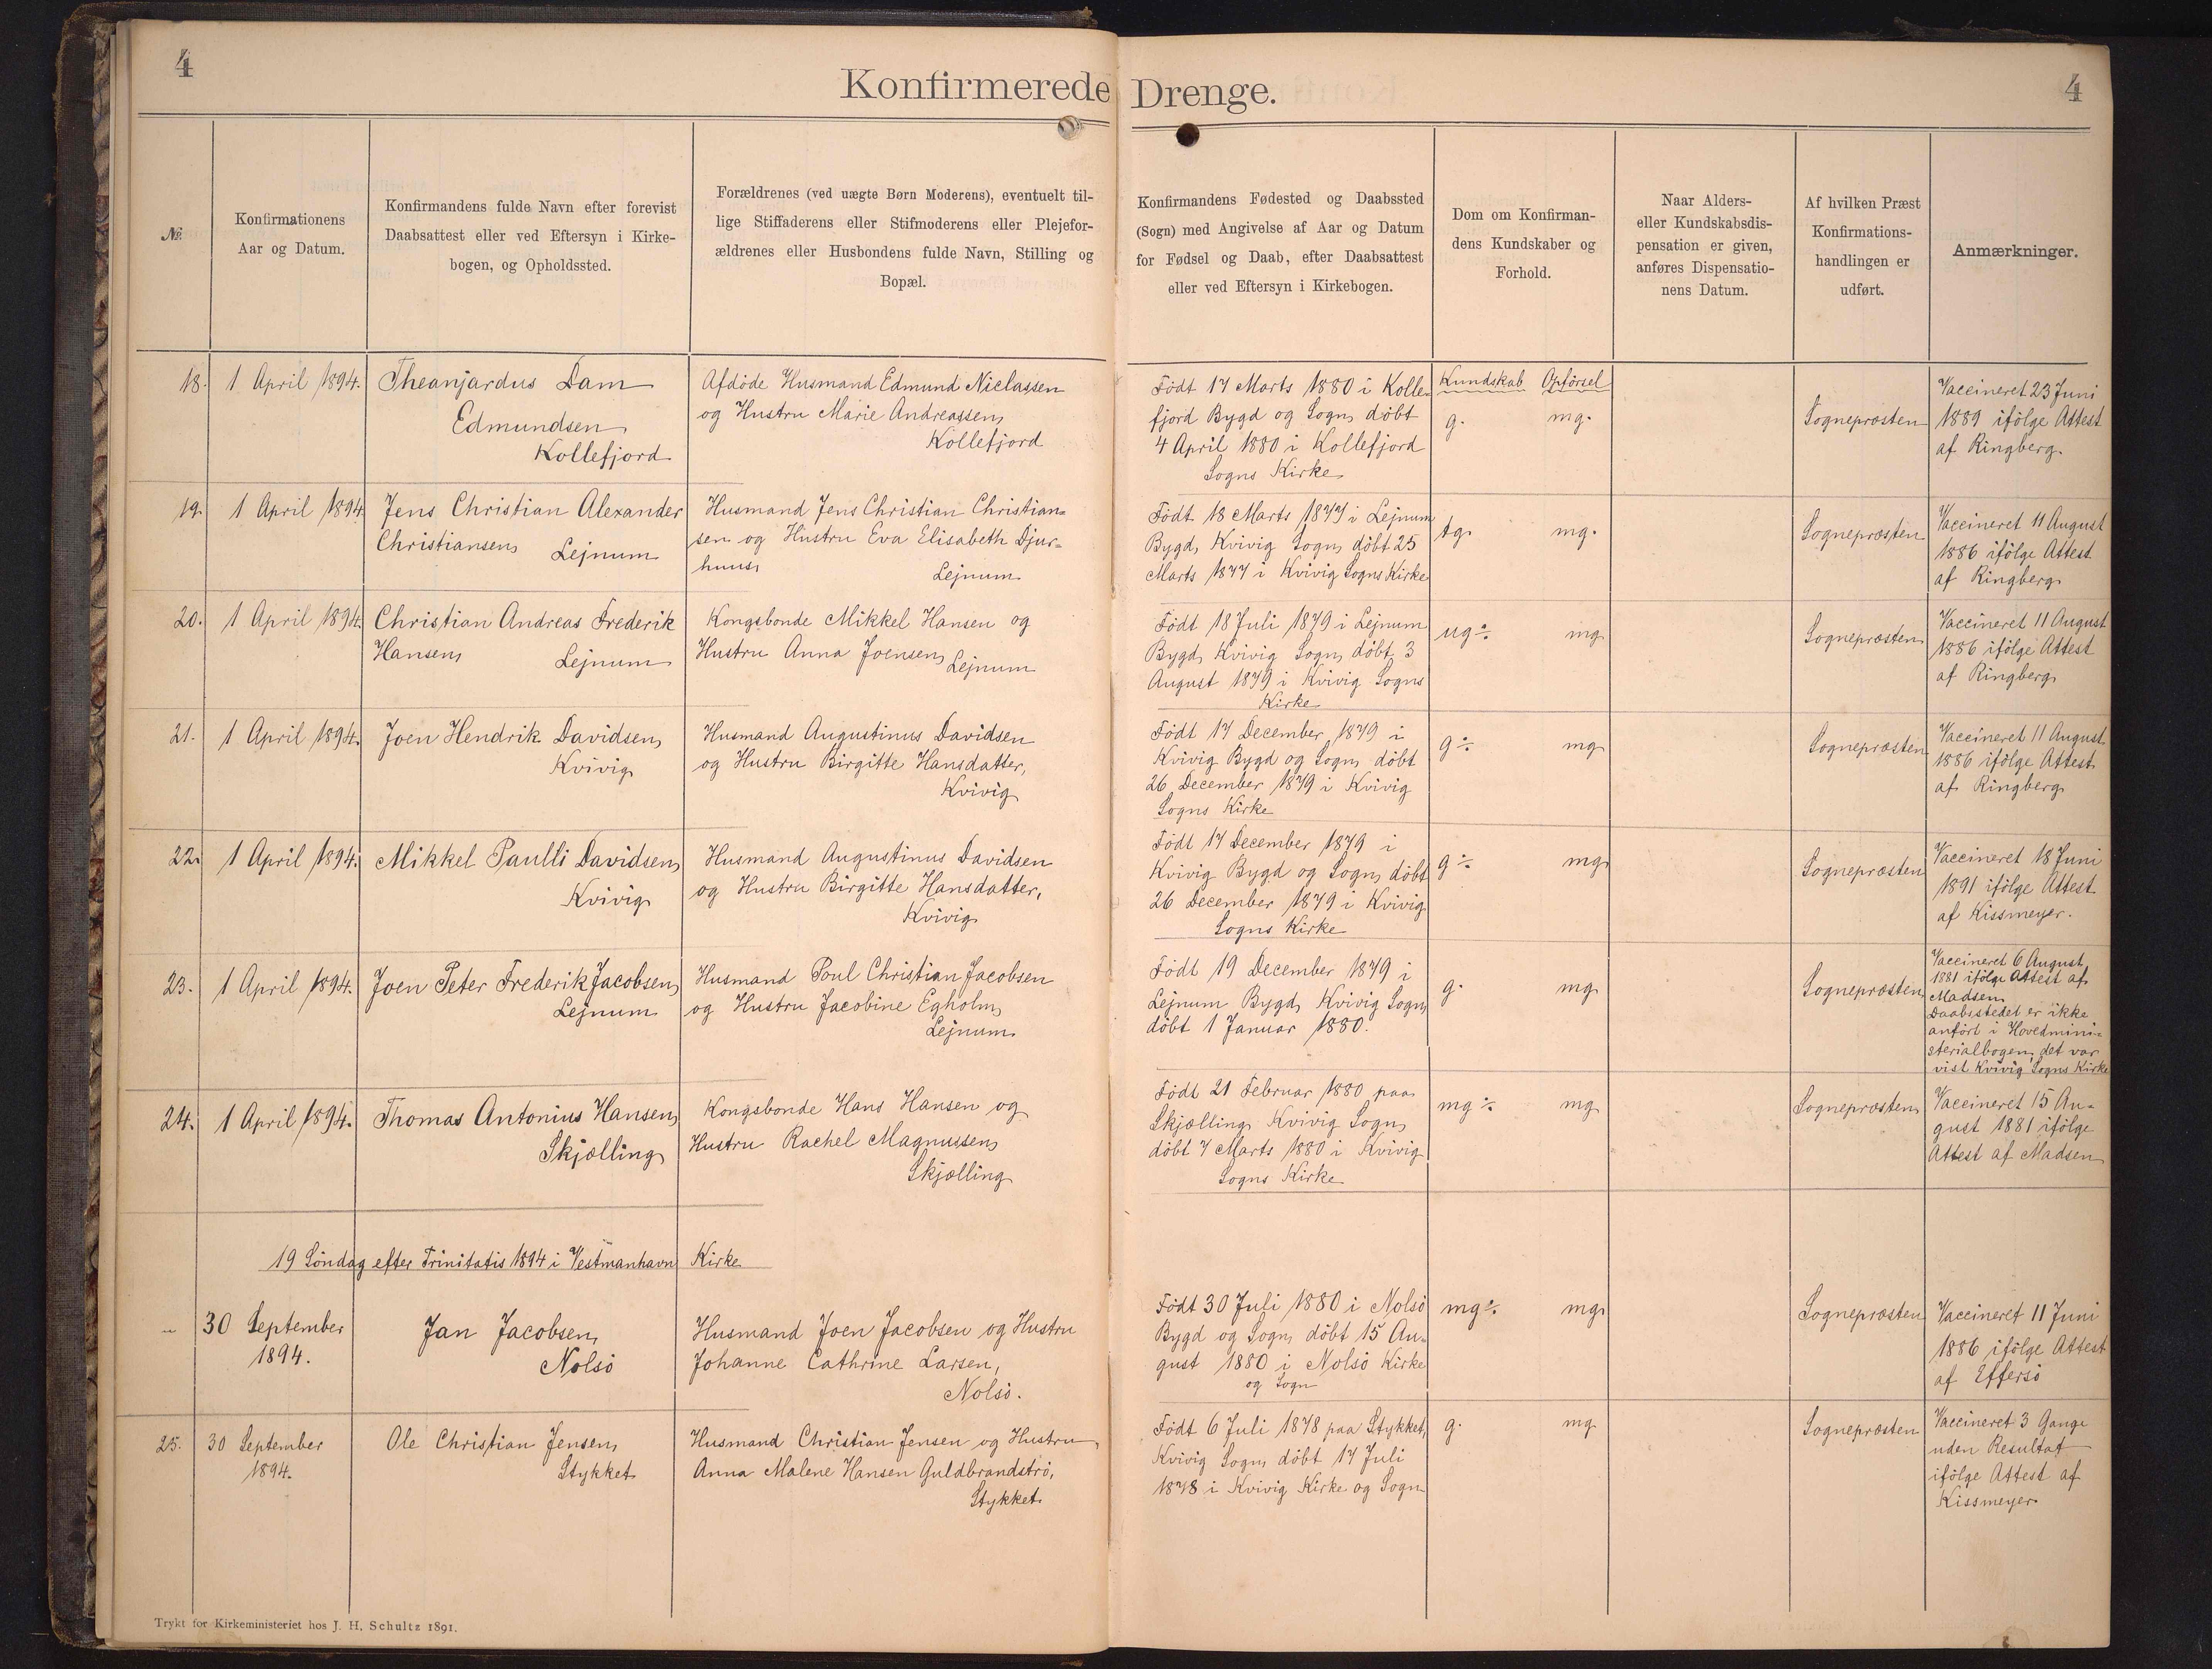 4
Konfirmerede Drenge.
4
№
Konfirmationens
Aar og Datum.
Konfirmandens fulde Navn efter forevist
Daabsattest eller ved Eftersyn i Kirke-
bogen, og Opholdssted.
Forældrenes (ved uægte Børn Moderens), eventuelt til-
lige Stiffaderens eller Stifmoderens eller Plejefor-
ældrenes eller Husbondens fulde Navn, Stilling og
Bopæl.
Konfirmandens Fødested og Daabssted
(Sogn) med Angivelse af Aar og Datum
for Fødsel og Daab, efter Daabsattest
eller ved Eftersyn i Kirkebogen.
Dom om Konfirman-
dens Kundskaber og
Forhold.
Naar Alders-
eller Kundskabsdis-
pensation er given,
anføres Dispensatio-
nens Datum.
Af hvilken Præst
Konfirmations-
handlingen er
udført.
Anmærkninger.
18. 1 April 1894.
Theanjardus Dam
Edmundsen
Kollefjord
Afdöde Husmand Edmund Niclassen
og Hustru Marie Andreassen,
Kollefjord
Födt 17 Marts 1880 i Kolle-
fjord Bygd og Sogn, döbt
4 April 1880 i Kollefjord
Sogns Kirke
Kundskab Opförsel
g. mg.
Sognepræsten
Vaccineret 23 Juni
1889 ifölge Attest
af Ringberg.
19. 1 April 1894
Jens Christian Alexander
Christiansen, Lejnum
Husmand Jens Christian Christian=
sen og Hustru Eva Elisabeth Djur=
huus,
Lejnum
Födt 18 Marts 1877 i Lejnum
Bygd, Kvivig Sogn, döbt 25
Marts 1877 i Kvivig Sogns Kirke
tg. mg.
Sognepræsten
Vaccineret 11 August
1886 ifölge Attest
af Ringberg
20. 1 April 1894.
Christian Andreas Frederik
Hansen, Lejnum
Kongsbonde Mikkel Hansen og
Hustru Anna Joensen, Lejnum
Födt 18 Juli 1879 i Lejnum
Bygd, Kvivig Sogn, döbt 3
August 1879 i Kvivig Sogns
Kirke
ug ÷ mg
Sognepræsten
Vaccineret 11 August
1886 ifölge Attest
af Ringberg
21. 1 April 1894.
Joen Hendrik Davidsen,
Kvivig
Husmand Augustinus Davidsen
og Hustru Birgitte Hansdatter,
Kvivig
Födt 17 December 1879 i
Kvivig Bygd og Sogn, döbt
26 December 1879 i Kvivig
Sogns Kirke
g ÷ mg
Sognepræsten
Vaccineret 11 August
1886 ifölge Attest
af Ringberg
22. 1 April 1894.
Mikkel Paulli Davidsen,
Kvivig
Husmand Augustinus Davidsen
og Hustru Birgitte Hansdatter,
Kvivig
Födt 17 December 1879 i
Kvivig Bygd og Sogn, döbt
26 December 1879 i Kvivig
Sogns Kirke
g ÷ mg
Sognepræsten
Vaccineret 18 Juni
1891 ifölge Attest
af Kissmeyer.
23. 1 April 1894.
Joen Peter Frederik Jacobsen,
Lejnum
Husmand Poul Christian Jacobsen
og Hustru Jacobine Egholm,
Lejnum
Födt 19 December 1879 i
Lejnum Bygd, Kvivig Sogn,
döbt 1 Januar 1880.
g. mg
Sognepræsten
Vaccineret 6 August
1881 ifölge Attest af
Madsen
Daabsstedet er ikke
anfört i Hovedmini=
sterialbogen, det var
vist Kvivig Sogns Kirke
24. 1 April 1894.
Thomas Antonius Hansen,
Skjælling
Kongsbonde Hans Hansen og
Hustru Rachel Magnussen,
Skjælling
Födt 21 Februar 1880 paa
Skjælling, Kvivig Sogn,
döbt 7 Marts 1880 i Kvivig
Sogns Kirke
mg ÷ mg
Sognepræsten
Vaccineret 15 Au=
gust 1881 ifölge
Attest af Madsen
19 Söndag efter Trinitatis 1894 i Vestmanhavn Kirke
" 30 September
1894.
Jan Jacobsen,
Nolsö
Husmand Joen Jacobsen og Hustru
Johanne Cathrine Larsen,
Nolsö.
Födt 30 Juli 1880 i Nolsö
Bygd og Sogn, döbt 15 Au=
gust 1880 i Nolsö Kirke
og Sogn
mg ÷ mg
Sognepræsten
Vaccineret 11 Juni
1886 ifölge Attest
af Effersö
25. 30 September
1894.
Ole Christian Jensen,
Stykket
Husmand Christian Jensen og Hustru
Anna Malene Hansen Guldbrandströ,
Stykket
Födt 6 Juli 1878 paa Stykket,
Kvivig Sogn, döbt 14 Juli
1878 i Kvivig Kirke og Sogn
g. mg
Sognepræsten
Vaccineret 3 Gange
uden Resultat
ifölge Attest af
Kissmeyer
Trykt for Kirkeministeriet hos J. H. Schultz 1891.